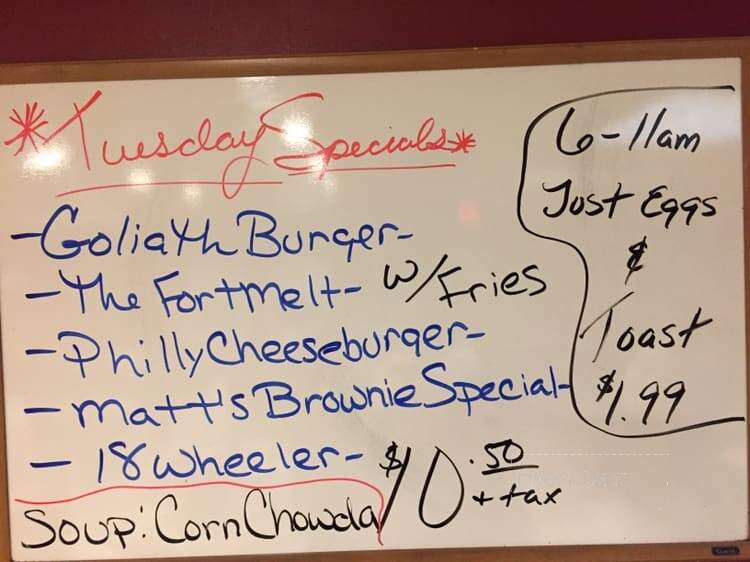 *Tuesday Specials*
-Goliath Burger-
-The Fortmelt- w/Fries
-Philly Cheeseburger-
-Matt's Brownie Special-
-18 wheeler- $10.50
+ tax
Soup: Corn Chowda
6-11am
Just Eggs
&
Toast
$1.99